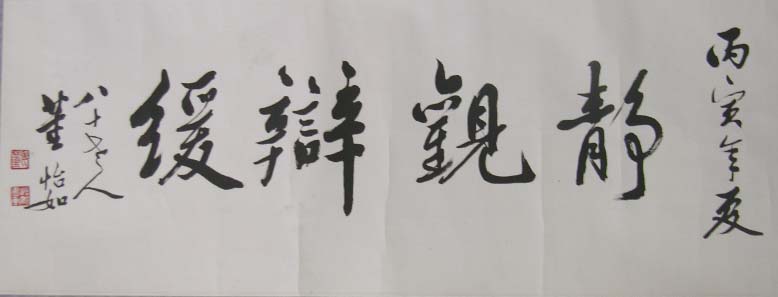 丙寅年夏
靜觀辯緩
八十老人
董怡如